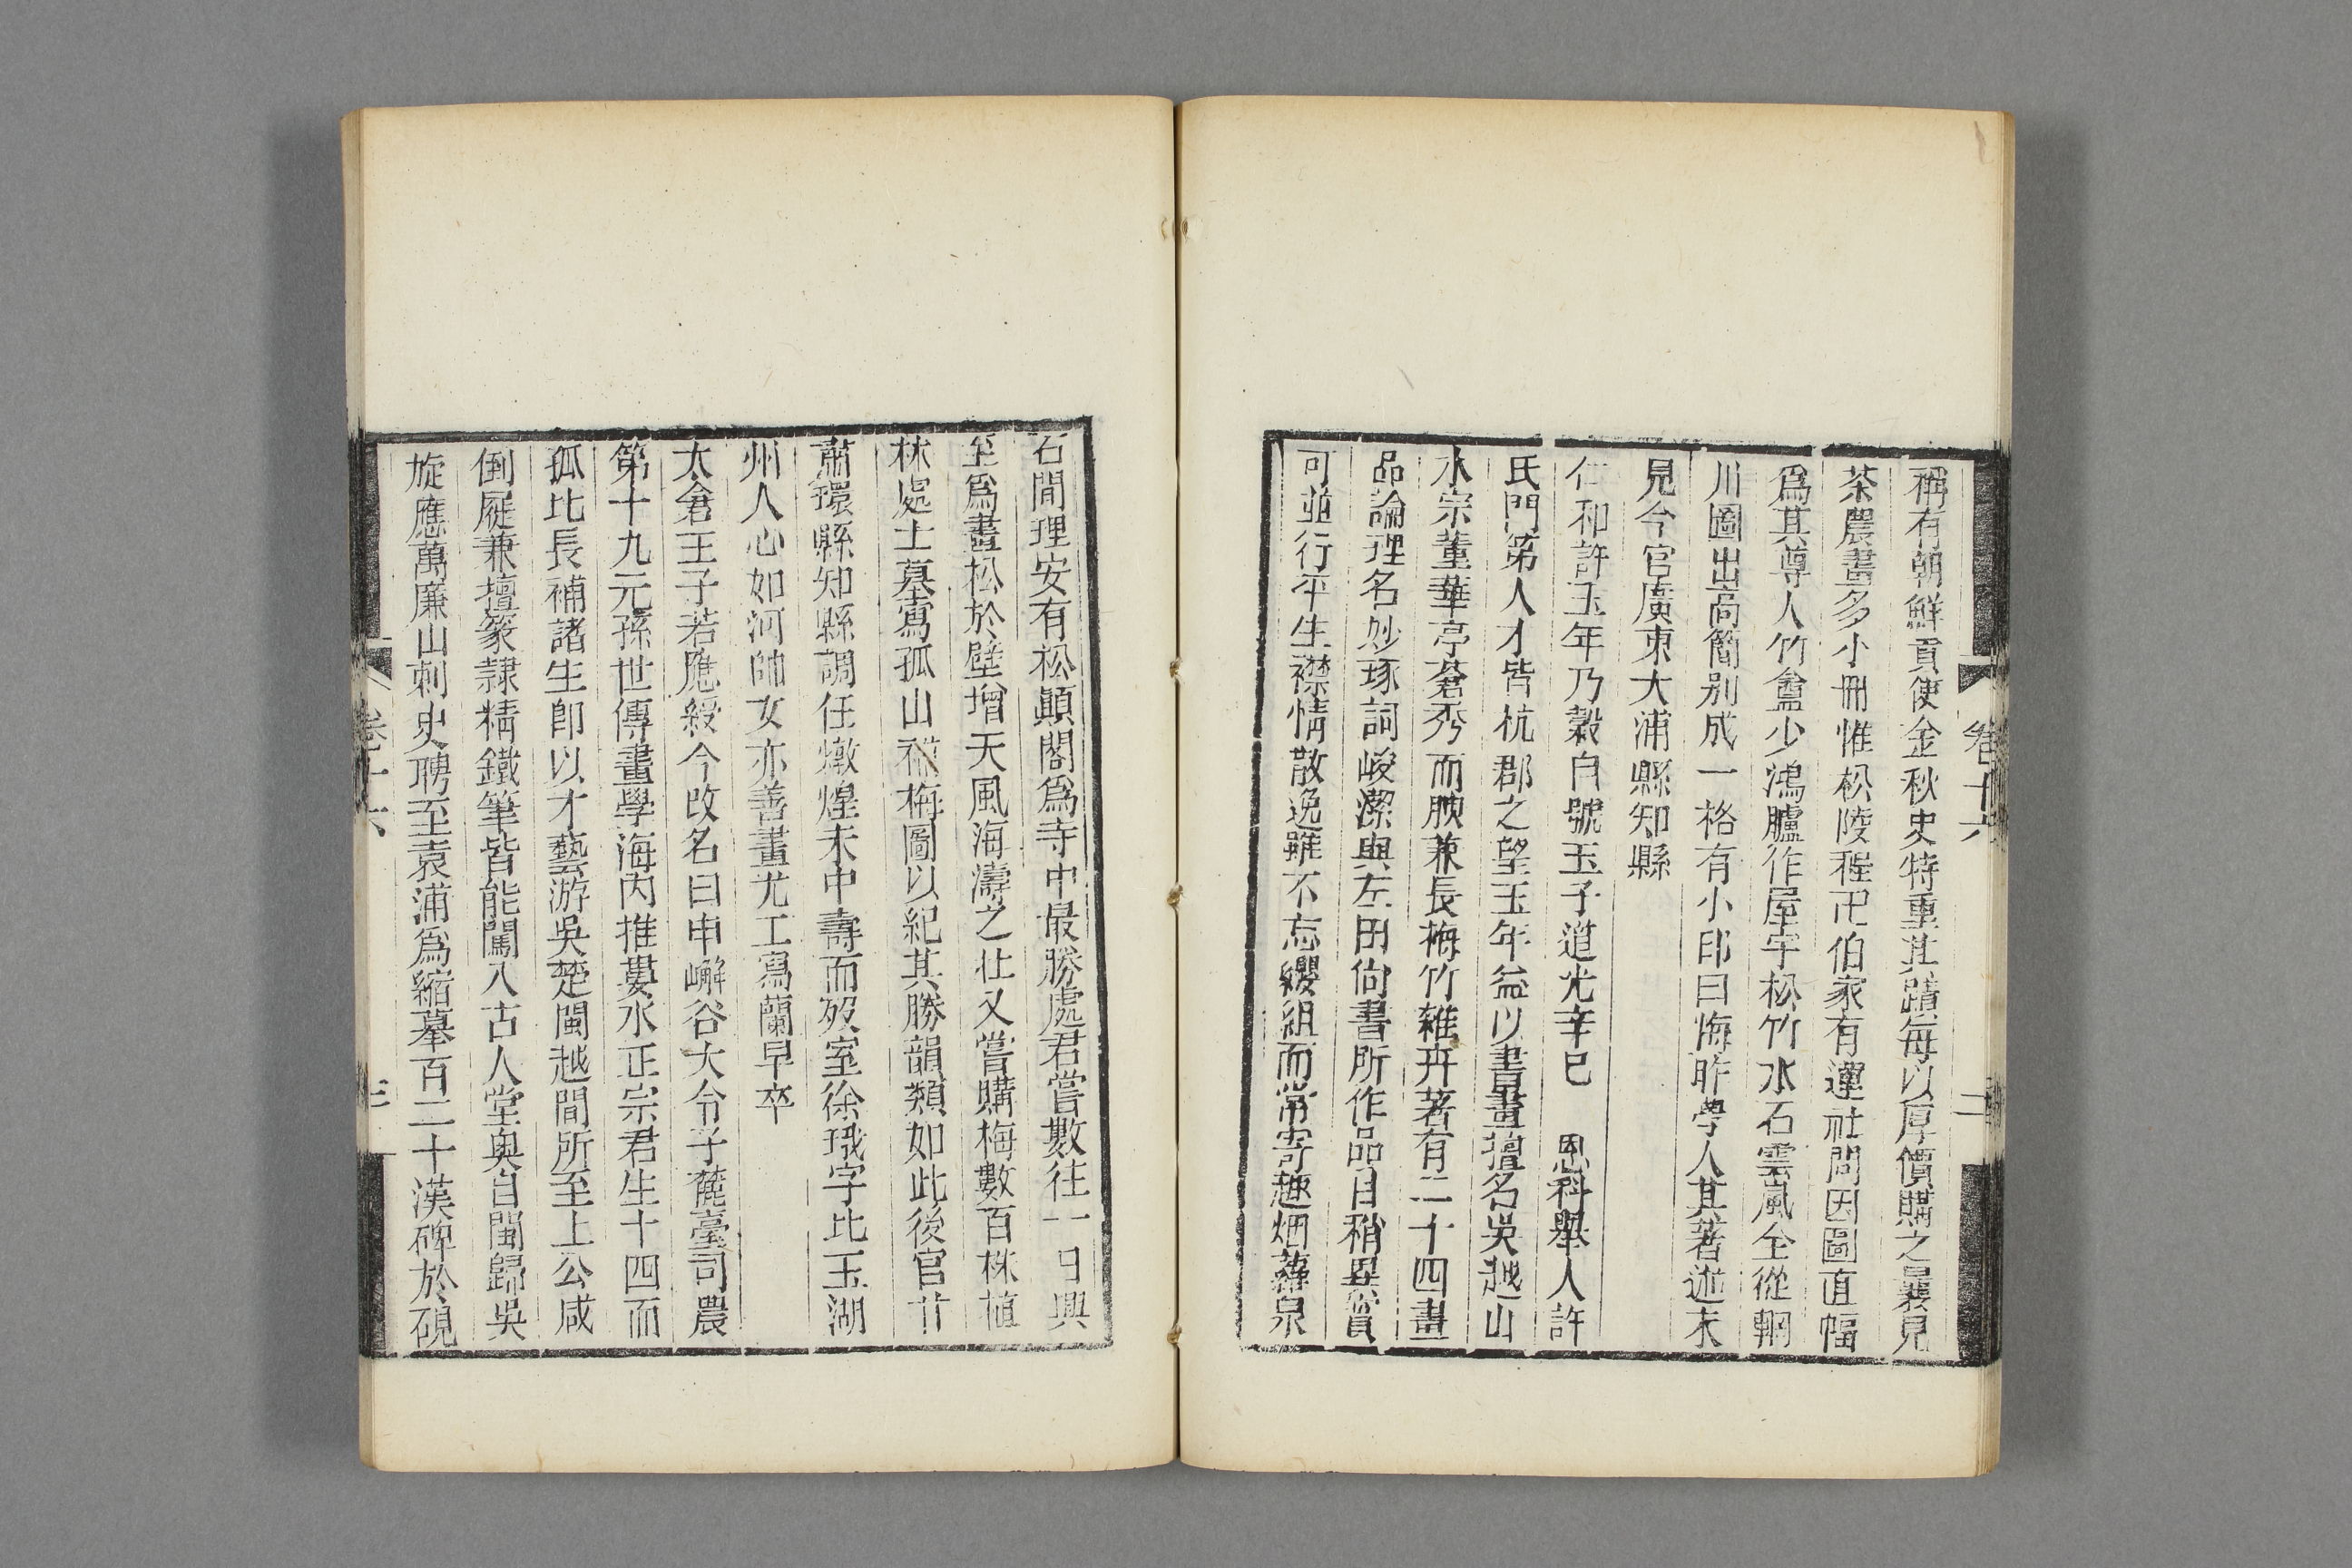 稱有朝鮮貢使金秋史特重其蹟每以厚價購之曩見
茶農畫多小冊惟松陵程邵伯家有蓮社問因圖直幅
爲其尊人竹盦少鴻臚作屋宇松竹水石雲嵐全從輞
川圖出高簡别成一格有小印曰悔昨學人其著述未
見今官廣東大浦縣知縣
仁和許玉年乃穀自號玉子道光辛巳 恩科舉人許
氏門第人才皆杭郡之望玉年益以書畫擅名吳越山
水宗董華亭蒼秀而腴兼長梅竹雜卉著有二十四畫
品論理名妙琢詞峻潔與左田尙書所作品目稍異賞
可並行平生襟情散逸雖不忘纓組而常寄趣烟蘿泉
卷十六
二
石間理安有松顛閣爲寺中最勝處君嘗數往一日興
至爲畫松於壁增天風海濤之壯又嘗購梅數百株植
林處士墓寫孤山補梅圖以紀其勝韻類如此後官甘
肅環縣知縣調任燉煌未中壽而歿室徐玖字比玉湖
州人心如河帥女亦善畫尤工寫蘭早卒
太倉王子若應綬今改名曰申嶰谷大令子麓臺司農
第十九元孫世傳畫學海內推婁水正宗君生十四而
孤比長補諸生卽以才藝游吳楚閩越間所至上公咸
倒屣兼壇篆隸精鐵筆皆能闖入古人堂奥自閩歸吳
旋應萬廉山刺史聘至袁浦爲縮摹百二十漢碑於硯
卷十六
三